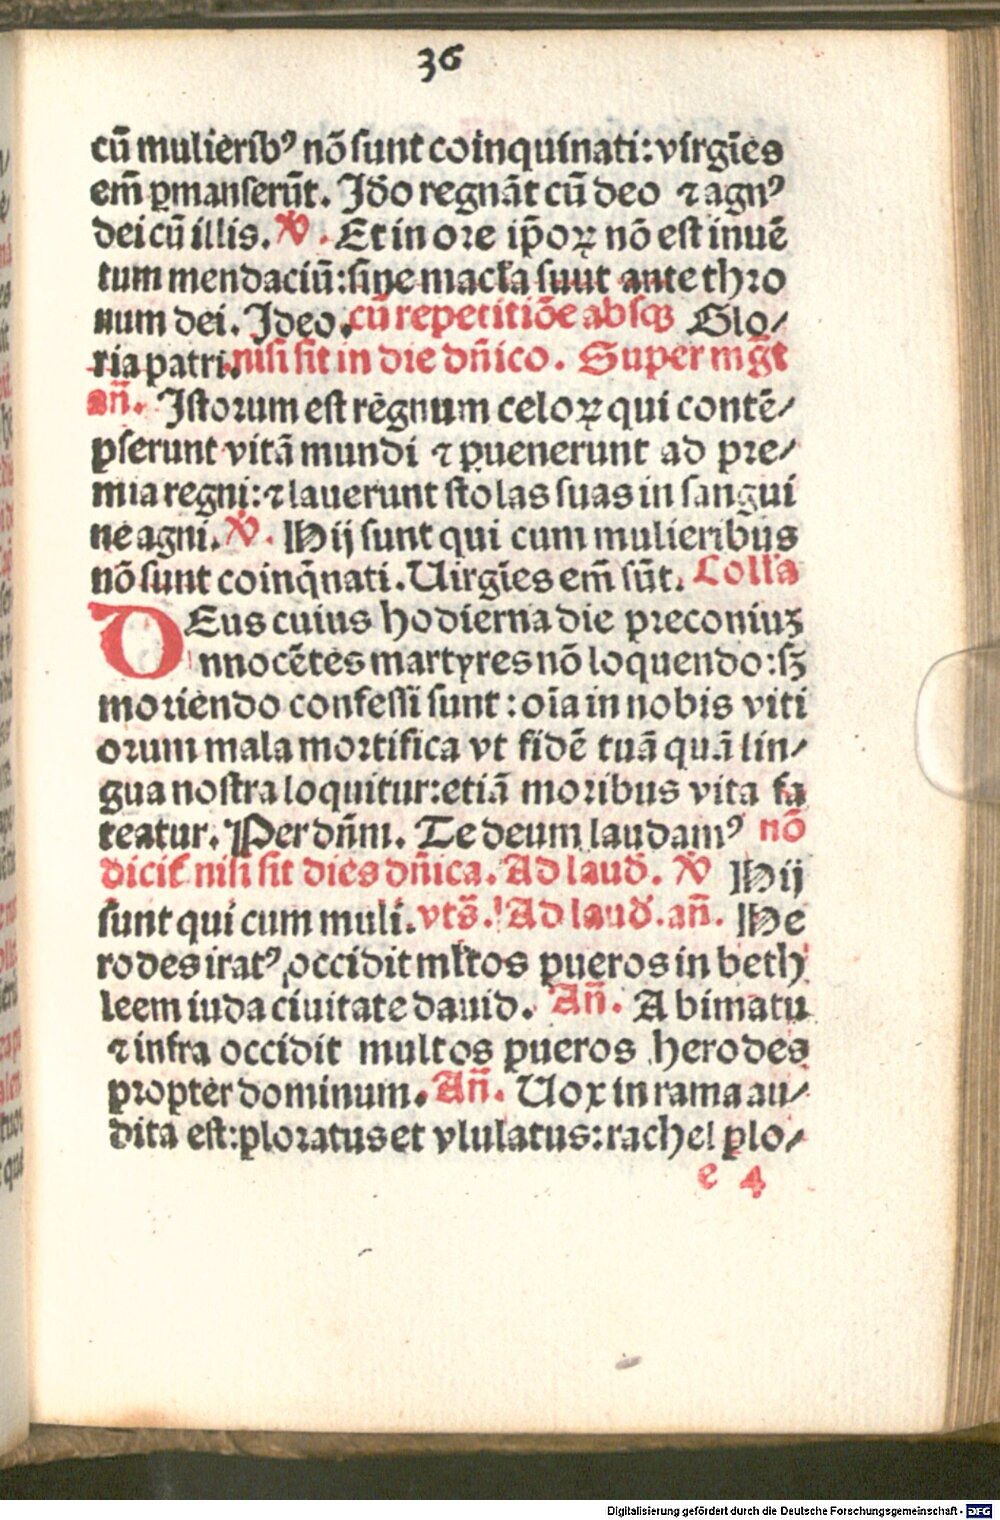 36
cū mulierib⁹ nō sunt coinquinati: virgīes
em̄ ꝑmanserūt. Ido̅ regnāt cū deo ⁊ agn⁹
dei cū illis. ℣. Et in ore ip̄oꝝ nō est inuē
tum mendaciū: sine mac̄la sunt ante thro
num dei. Ideo. cū repetitiōe absqꝫ Glo⸗
ria patri. nisi sit in die dn̄ico. Super mg̅t
an̄. Istorum est regnum celoꝝ qui contē⸗
pserunt vitā mundi ⁊ ꝑuenerunt ad pre⸗
mia regni: ⁊ lauerunt stolas suas in sangui
ne agni. ℣. Hij sunt qui cum mulieribus
nō sunt coinq̄nati. Uirgīes em̄ sūt. Coll̄a
DEus cuius hodierna die preconiuꝫ
innocētes martyres nō loquendo: sꝫ
moriendo confessi sunt: oīa in nobis viti
orum mala mortifica vt fidē tuā quā lin⸗
gua nostra loquitur: etiā moribus vita fa
teatur. Per dn̄m. Te deum laudam⁹ nō
dicit̄ nisi sit dies dn̄ica. Ad laud̄. ℣ Hij
sunt qui cum muli. vts̄. Ad laud̄. an̄. He
rodes irat⁹ occidit ml̄tos pueros in beth
leem iuda ciuitate dauid. An̄. A bimatu
⁊ infra occidit multos pueros herodes
propter dominum. An̄. Uox in rama au⸗
dita est: ploratus et vlulatus: rachel plo⸗
e 4
Digitalisierung gefördert durch die Deutsche Forschungsgemeinschaft - DFG